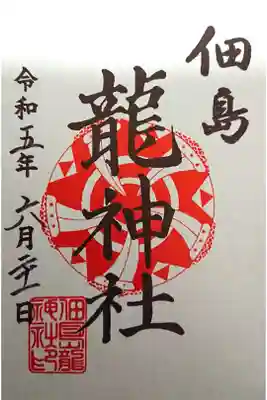 佃島
龍神社
令和五年
六月二十一日
佃島龍
神社印